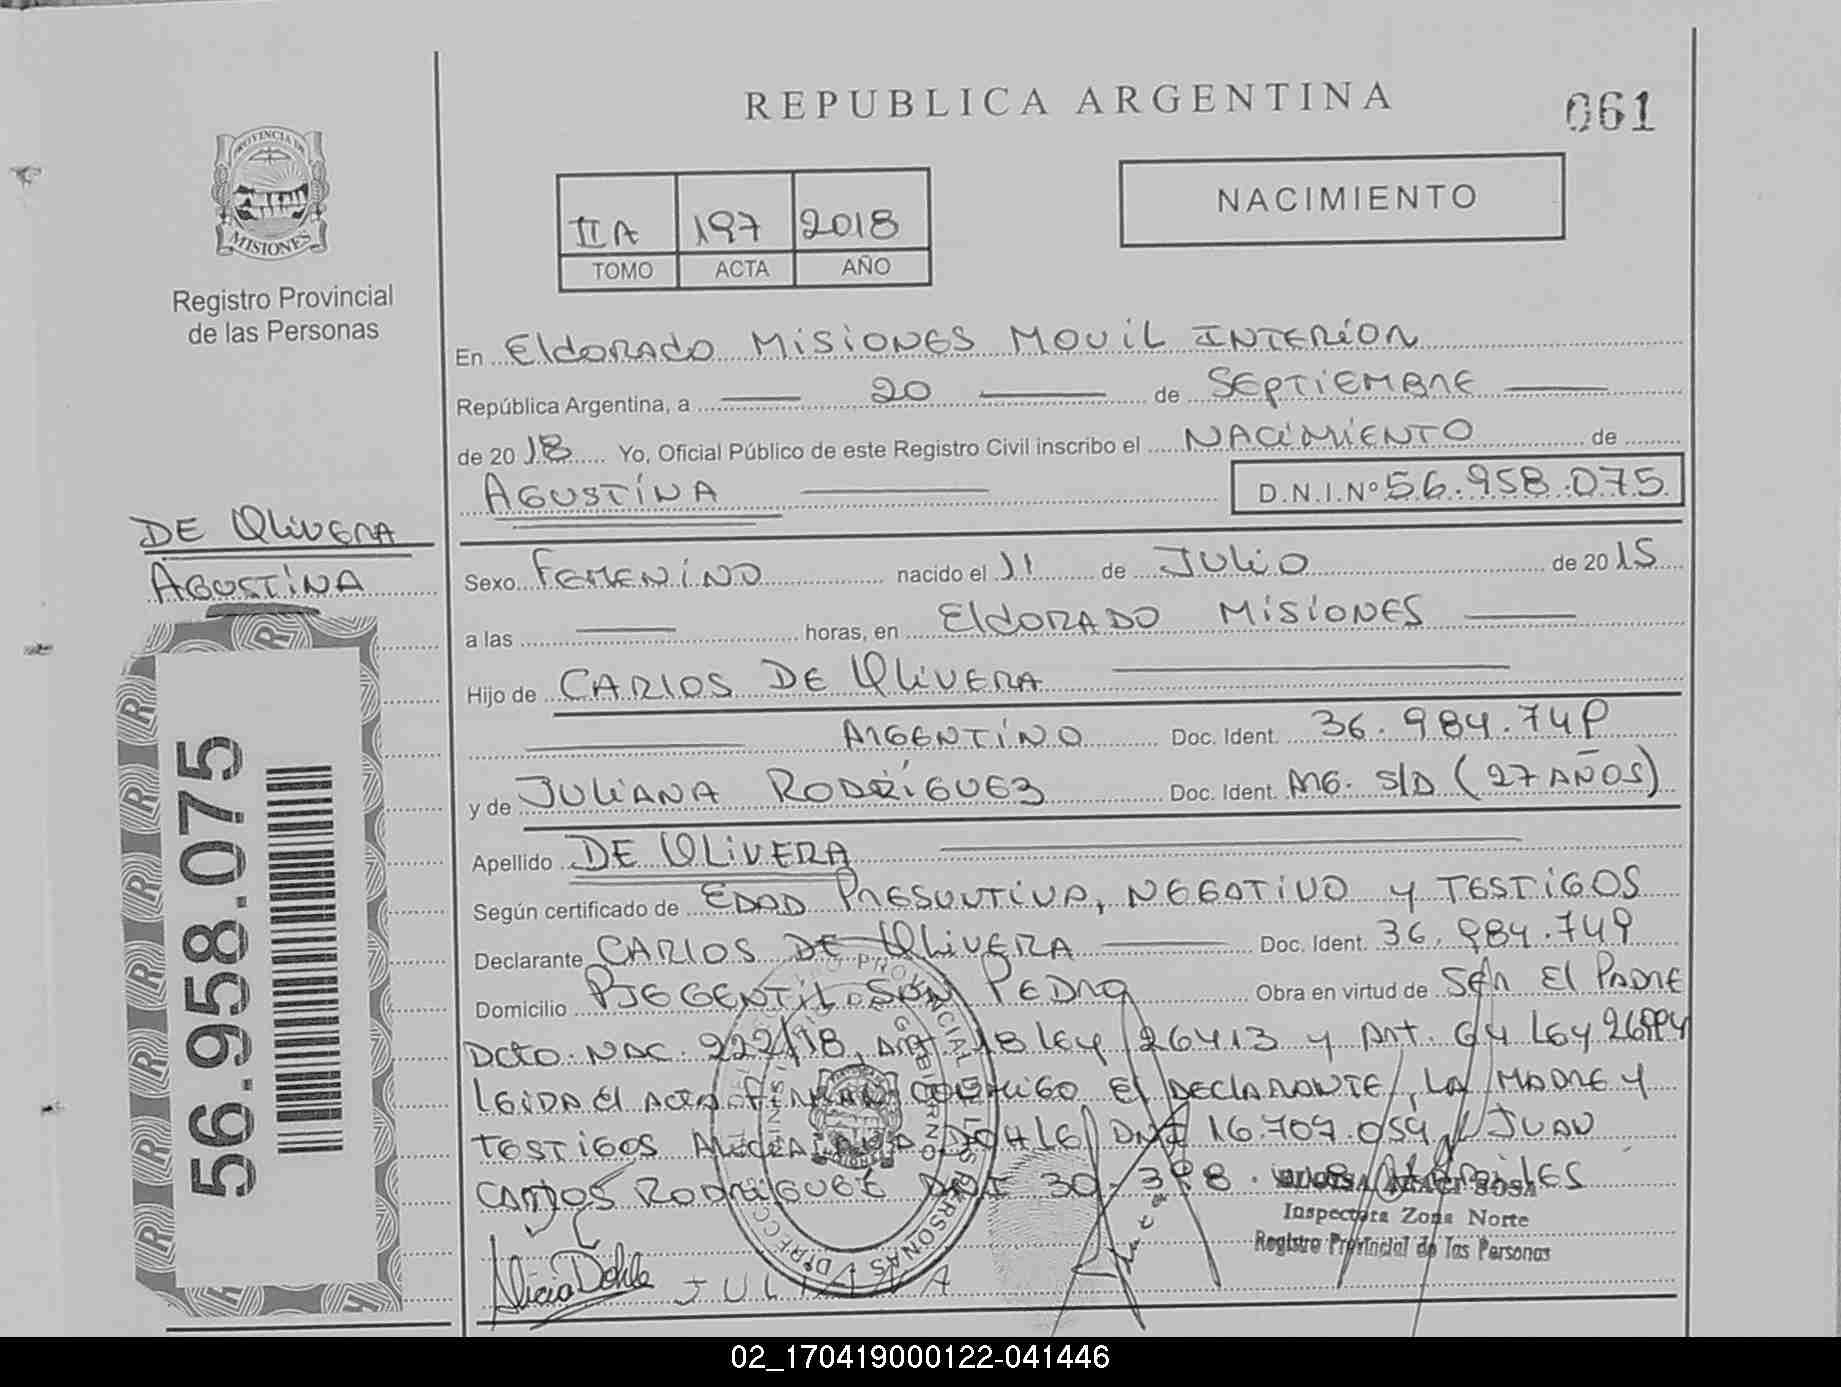 REPUBLICA ARGENTINA
061
PROVINCIA DE
MISIONES
Registro Provincial
de las Personas
II A 197 2018
TOMO ACTA AÑO
NACIMIENTO
En Eldorado Misiones Movil Interior
República Argentina, a 20 de Septiembre
de 2018 Yo, Oficial Público de este Registro Civil inscribo el NACIMIENTO de
AGUSTINA D.N.I.Nº 56.958.075
DE OLIVERA
AGUSTINA
56.958.075
Sexo Femenino nacido el 11 de Julio de 2015
a las horas, en Eldorado Misiones
Hijo de CARLOS DE OLIVERA
Argentino Doc. Ident. 36.984.749
y de JULIANA RODRIGUEZ Doc. Ident. ARG. S/D (27 AÑOS)
Apellido DE OLIVERA
Según certificado de EDAD PRESUNTIVA, NEGATIVO Y TESTIGOS
Declarante CARLOS DE OLIVERA Doc. Ident. 36.984.749
Domicilio PJE GENTIL SAN PEDRO Obra en virtud de Ser El Padre
Dcto. NAC. 222/18, Art. 18 ley 26413 y Art. 64 Ley 26994
leida el acta firman conmigo el declarante, la madre y
testigos DOHLE DNI 16.709.059 Juan
Carlos Rodriguez DNI 30.398.
Inspectora Zona Norte
Registro Provincial de las Personas
Alicia Dohle JULIANA
02_170419000122-041446